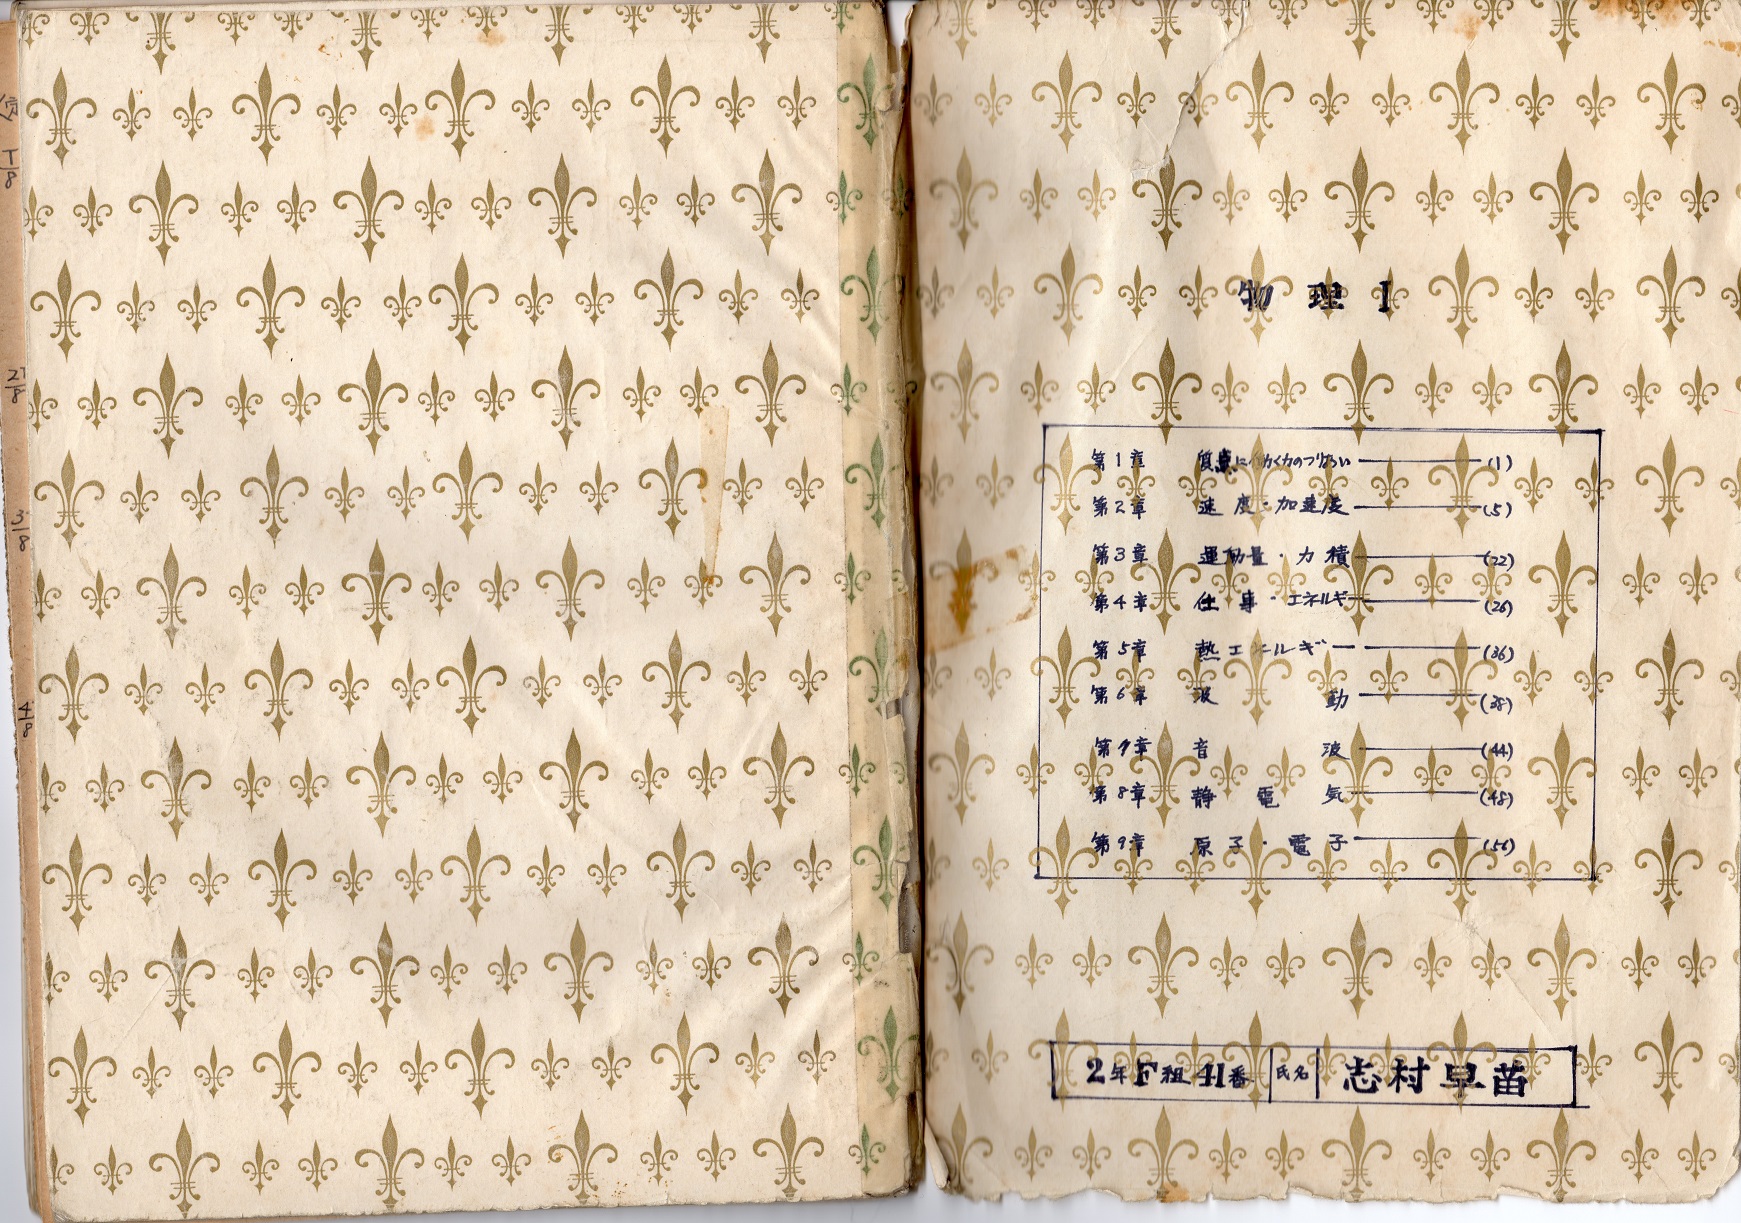 T/8
2T/8
3/8
4/8
物理I
第1章 質点に働く力のつりあい (1)
第2章 速度・加速度 (5)
第3章 運動量・力積 (22)
第4章 仕事・エネルギー (26)
第5章 熱エネルギー (36)
第6章 波動 (38)
第7章 音波 (44)
第8章 静電気 (48)
第9章 原子・電子 (56)
2年F組41番 氏名 志村早苗